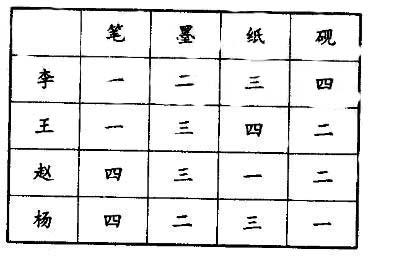 笔 墨 纸 砚
李 一 二 三 四
王 一 三 四 二
赵 四 三 一 二
杨 四 二 三 一